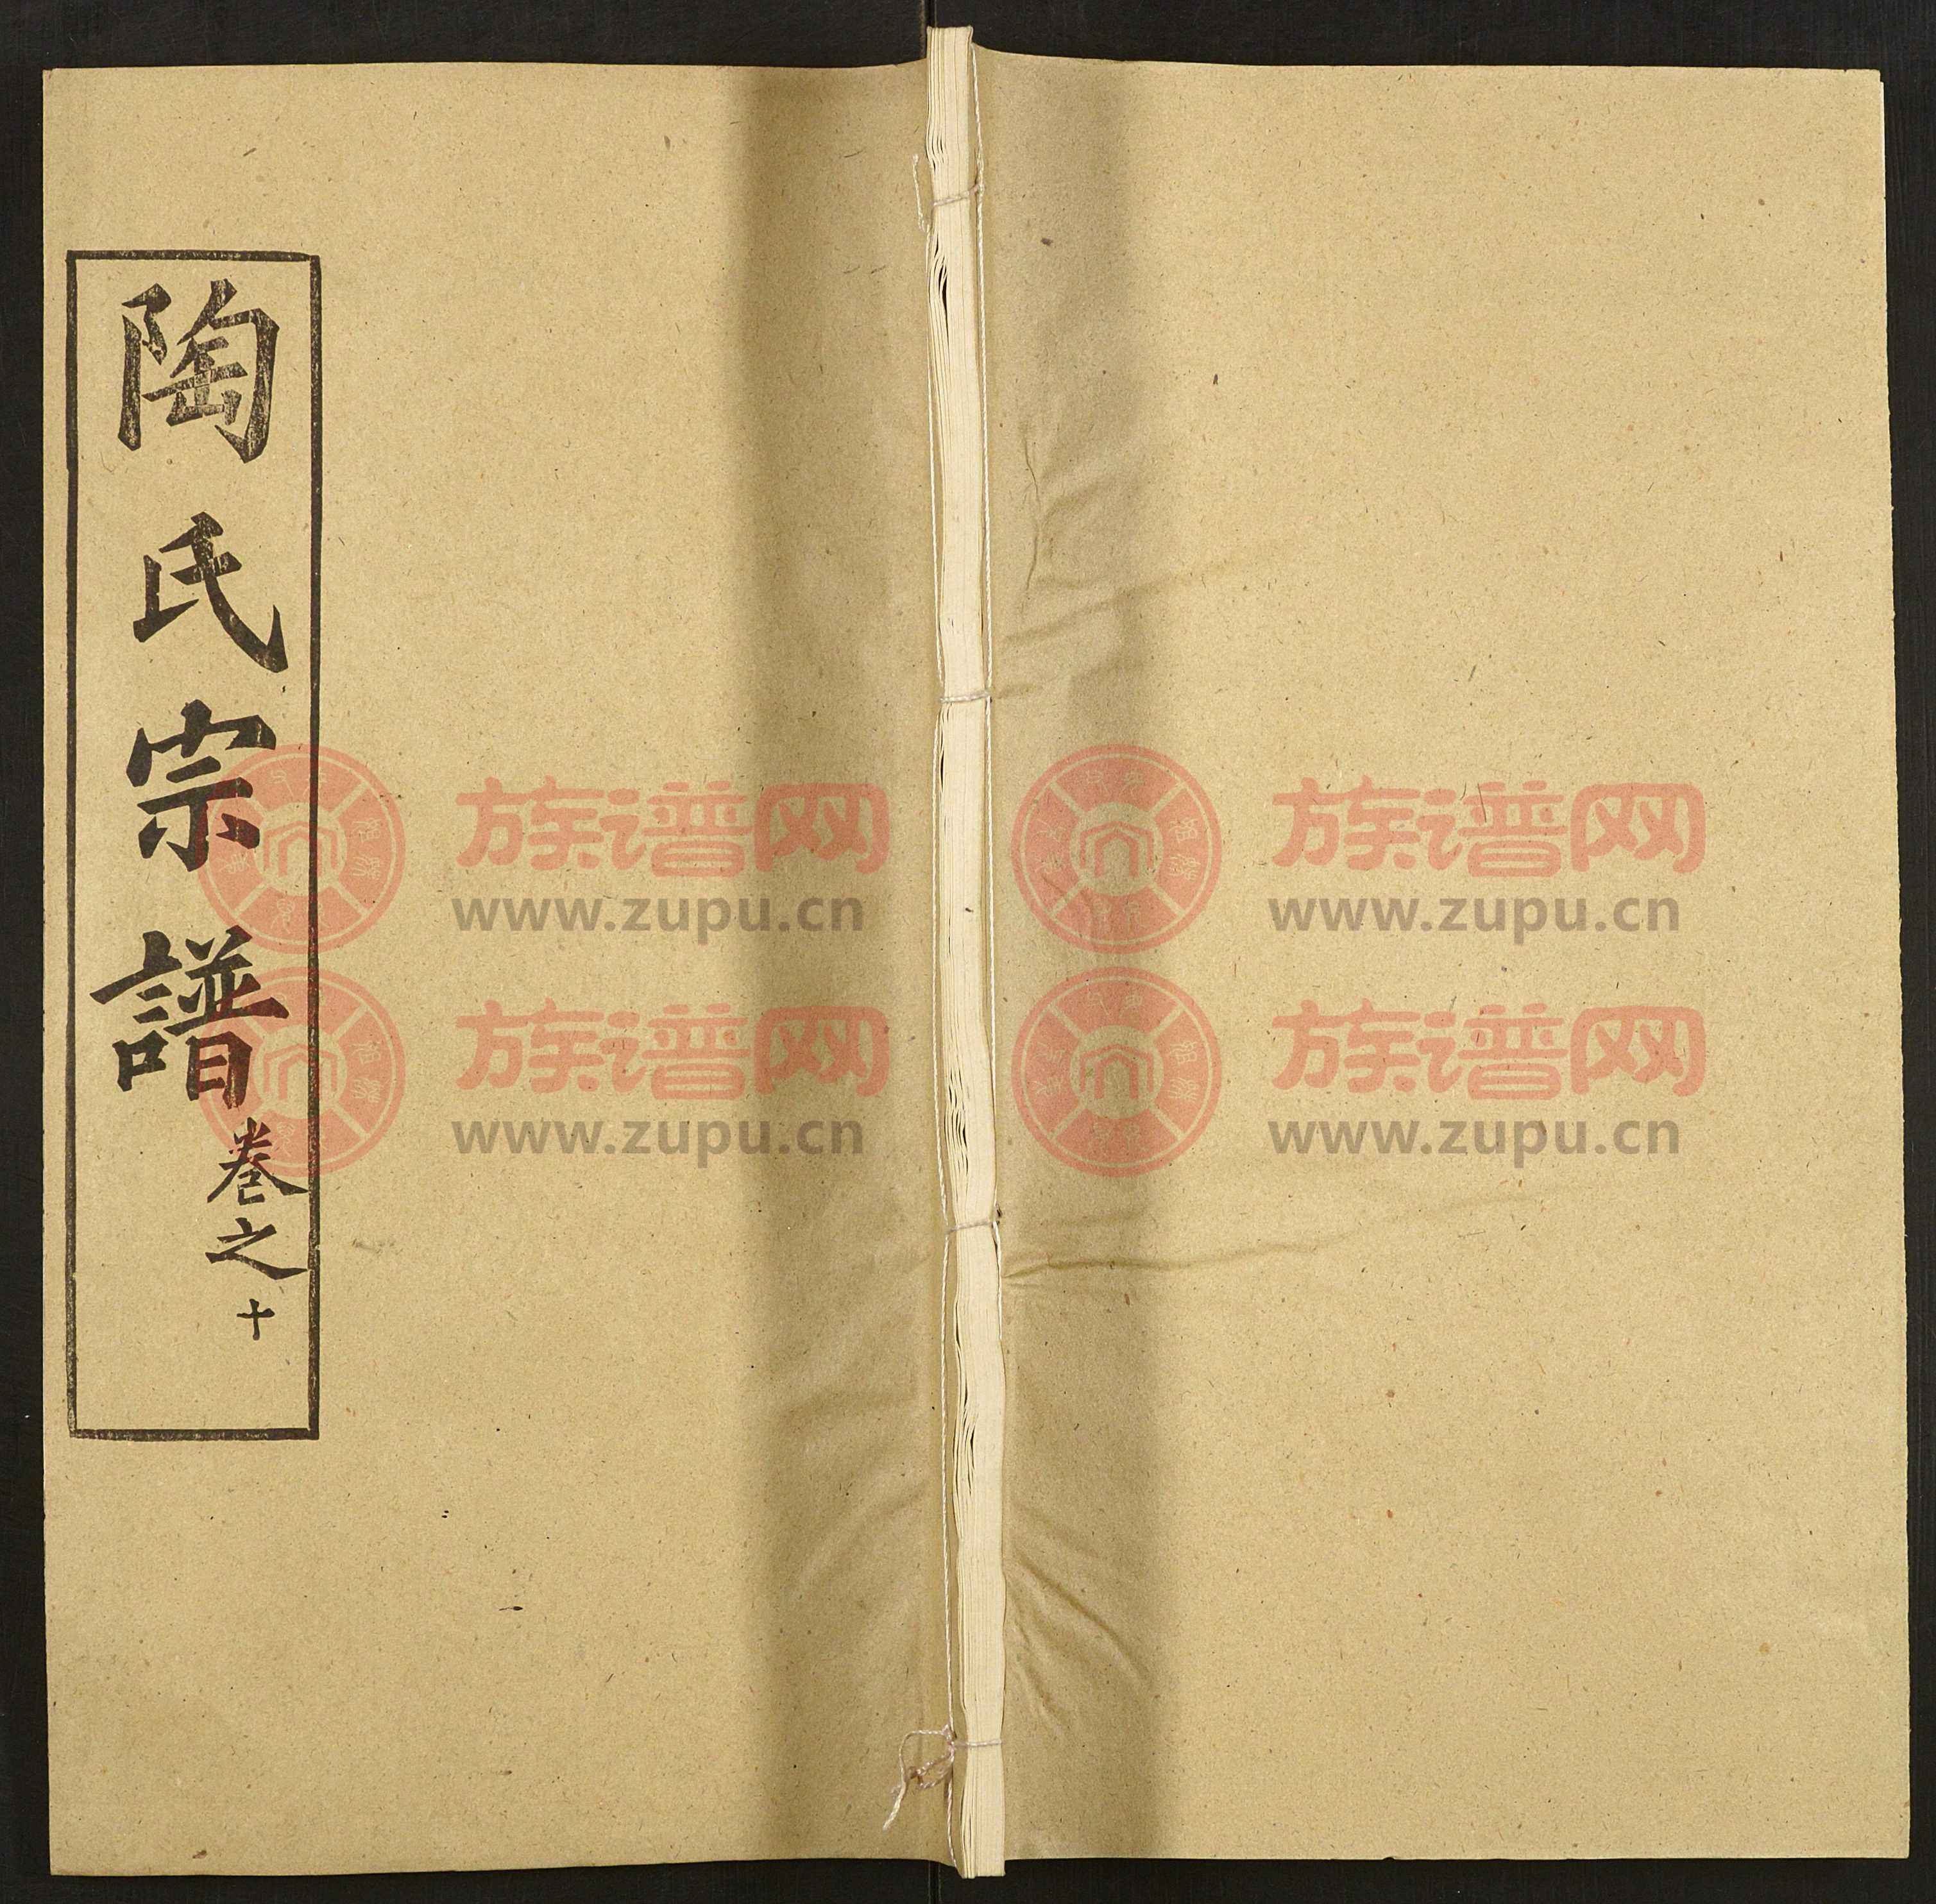 陶氏宗譜
卷之十
族谱网
www.zupu.cn
族谱网
www.zupu.cn
族谱网
www.zupu.cn
族谱网
www.zupu.cn